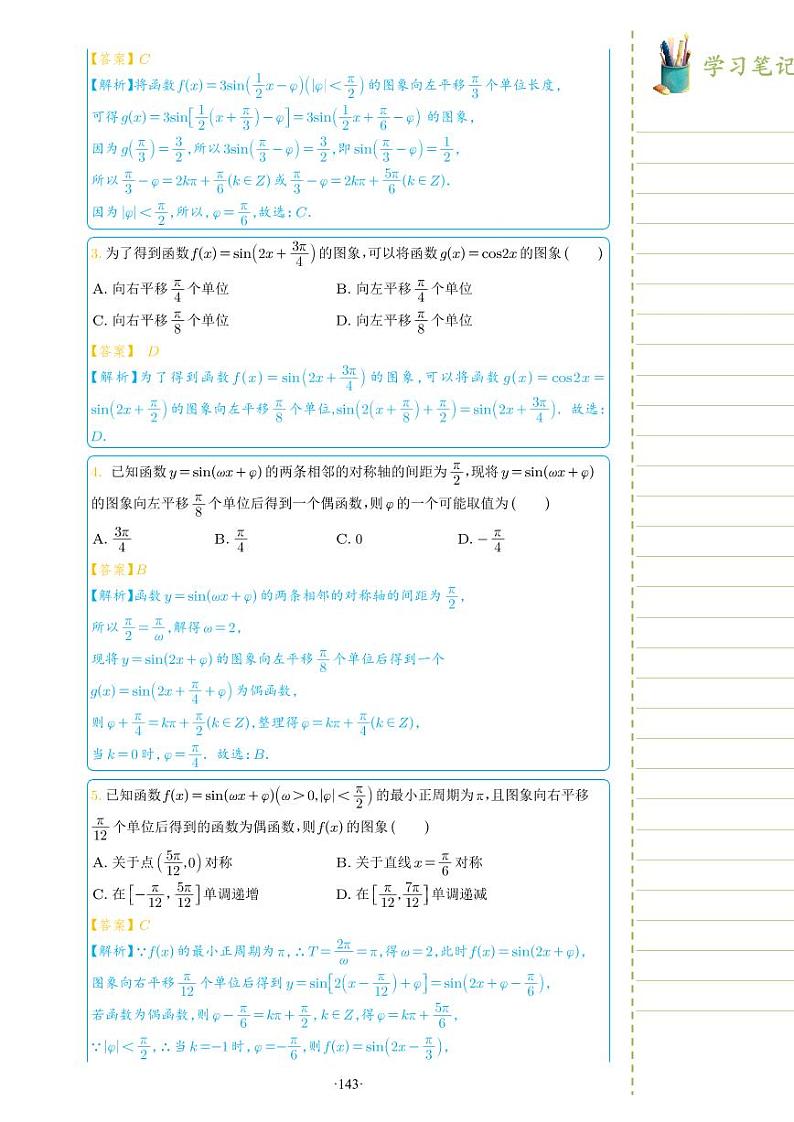 学习笔记
【答案】C
【解析】将函数f(x)=3sin(1/2x-φ)(|φ|<π/2)的图象向左平移π/3个单位长度,
可得g(x)=3sin[1/2(x+π/3)-φ]=3sin(1/2x+π/6-φ)的图象,
因为g(π/3)=3/2,所以3sin(π/3-φ)=3/2,即sin(π/3-φ)=1/2,
所以π/3-φ=2kπ+π/6(k∈Z)或π/3-φ=2kπ+5π/6(k∈Z).
因为|φ|<π/2,所以,φ=π/6,故选:C.
3. 为了得到函数f(x)=sin(2x+3π/4)的图象,可以将函数g(x)=cos2x的图象( )
A. 向右平移π/4个单位 B. 向左平移π/4个单位
C. 向右平移π/8个单位 D. 向左平移π/8个单位
【答案】 D
【解析】为了得到函数f(x)=sin(2x+3π/4)的图象,可以将函数g(x)=cos2x=
sin(2x+π/2)的图象向左平移π/8个单位,sin(2(x+π/8)+π/2)=sin(2x+3π/4). 故选:
D.
4. 已知函数y=sin(ωx+φ)的两条相邻的对称轴的间距为π/2,现将y=sin(ωx+φ)
的图象向左平移π/8个单位后得到一个偶函数,则φ的一个可能取值为( )
A. 3π/4 B. π/4 C. 0 D. -π/4
【答案】B
【解析】函数y=sin(ωx+φ)的两条相邻的对称轴的间距为π/2,
所以π/2=π/ω,解得ω=2,
现将y=sin(2x+φ)的图象向左平移π/8个单位后得到一个
g(x)=sin(2x+π/4+φ)为偶函数,
则φ+π/4=kπ+π/2(k∈Z),整理得φ=kπ+π/4(k∈Z),
当k=0时,φ=π/4. 故选:B.
5. 已知函数f(x)=sin(ωx+φ)(ω>0,|φ|<π/2)的最小正周期为π,且图象向右平移
π/12个单位后得到的函数为偶函数,则f(x)的图象( )
A. 关于点(5π/12,0)对称 B. 关于直线x=π/6对称
C. 在[-π/12,5π/12]单调递增 D. 在[π/12,7π/12]单调递减
【答案】C
【解析】∵f(x)的最小正周期为π,∴T=2π/ω=π,得ω=2,此时f(x)=sin(2x+φ),
图象向右平移π/12个单位后得到y=sin[2(x-π/12)+φ]=sin(2x+φ-π/6),
若函数为偶函数,则φ-π/6=kπ+π/2,k∈Z,得φ=kπ+5π/6,
∵|φ|<π/2,∴当k=-1时,φ=-π/6,则f(x)=sin(2x-π/3),
·143·